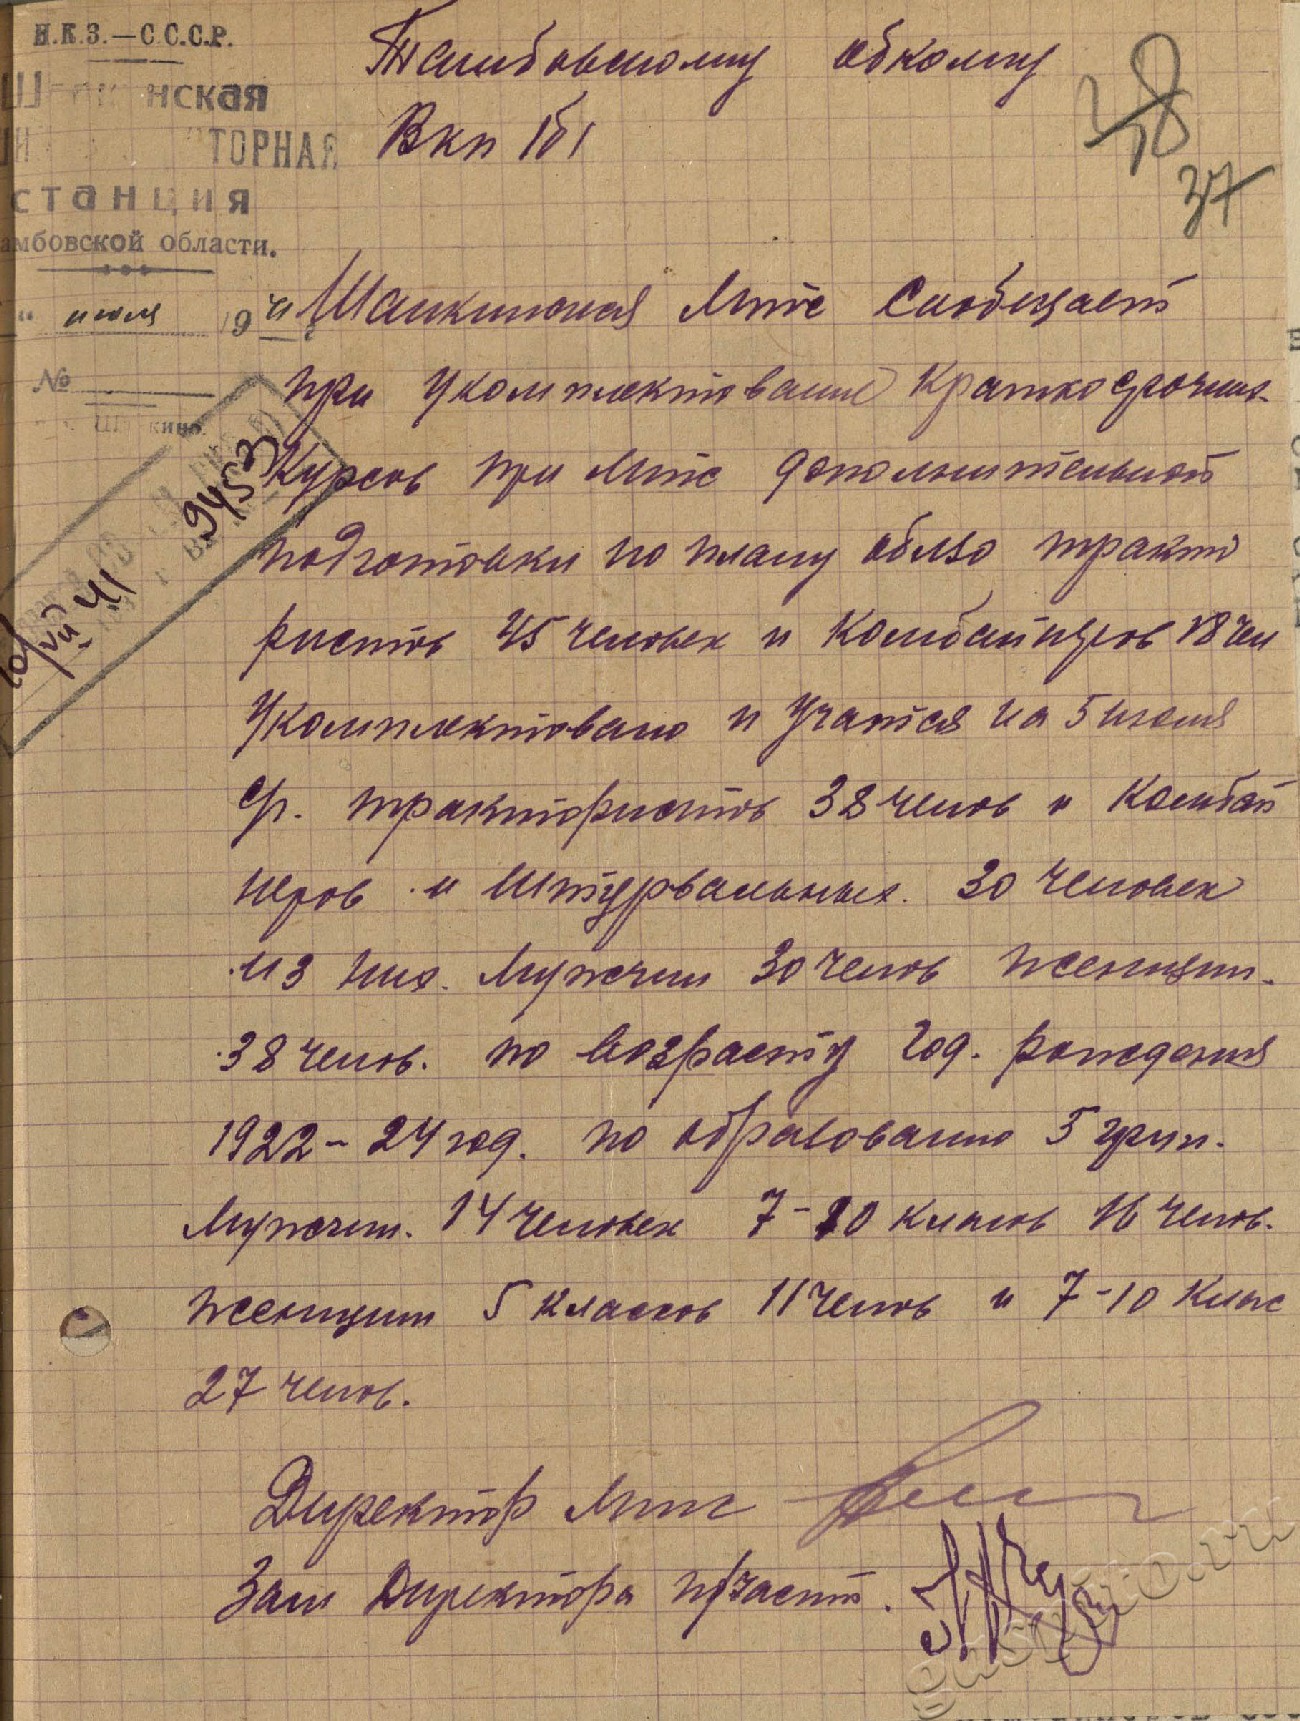 Н.К.З.—С.С.С.Р.
нская
ТОРНАЯ
станция
амбовской области.
" июля 1941
№
38
37
9453
10/VII 41
Тамбовскому обкому
Вкп /б/
Шапкинская Мтс сообщает
при укомплектование краткосрочных
курсов при Мтс дополнительной
подготовки по плану облзо тракто
ристов 45 человек и комбайнеров 18 чел
Укомплектовано и учатся на 5 июля
с/г. трактористов 38 челов и комбай
неров и штурвальных. 30 человек
из них. мужчин 30 челов женщин.
38 челов. по возрасту год. рождения
1922-24 год. по образованию 5 групп.
мужчин. 14 человек 7-10 класов 16 челов.
женщин 5 классов 11 челов и 7-10 клас
27 челов.
Директор Мтс
Зам директора п/части.
gaspito.ru